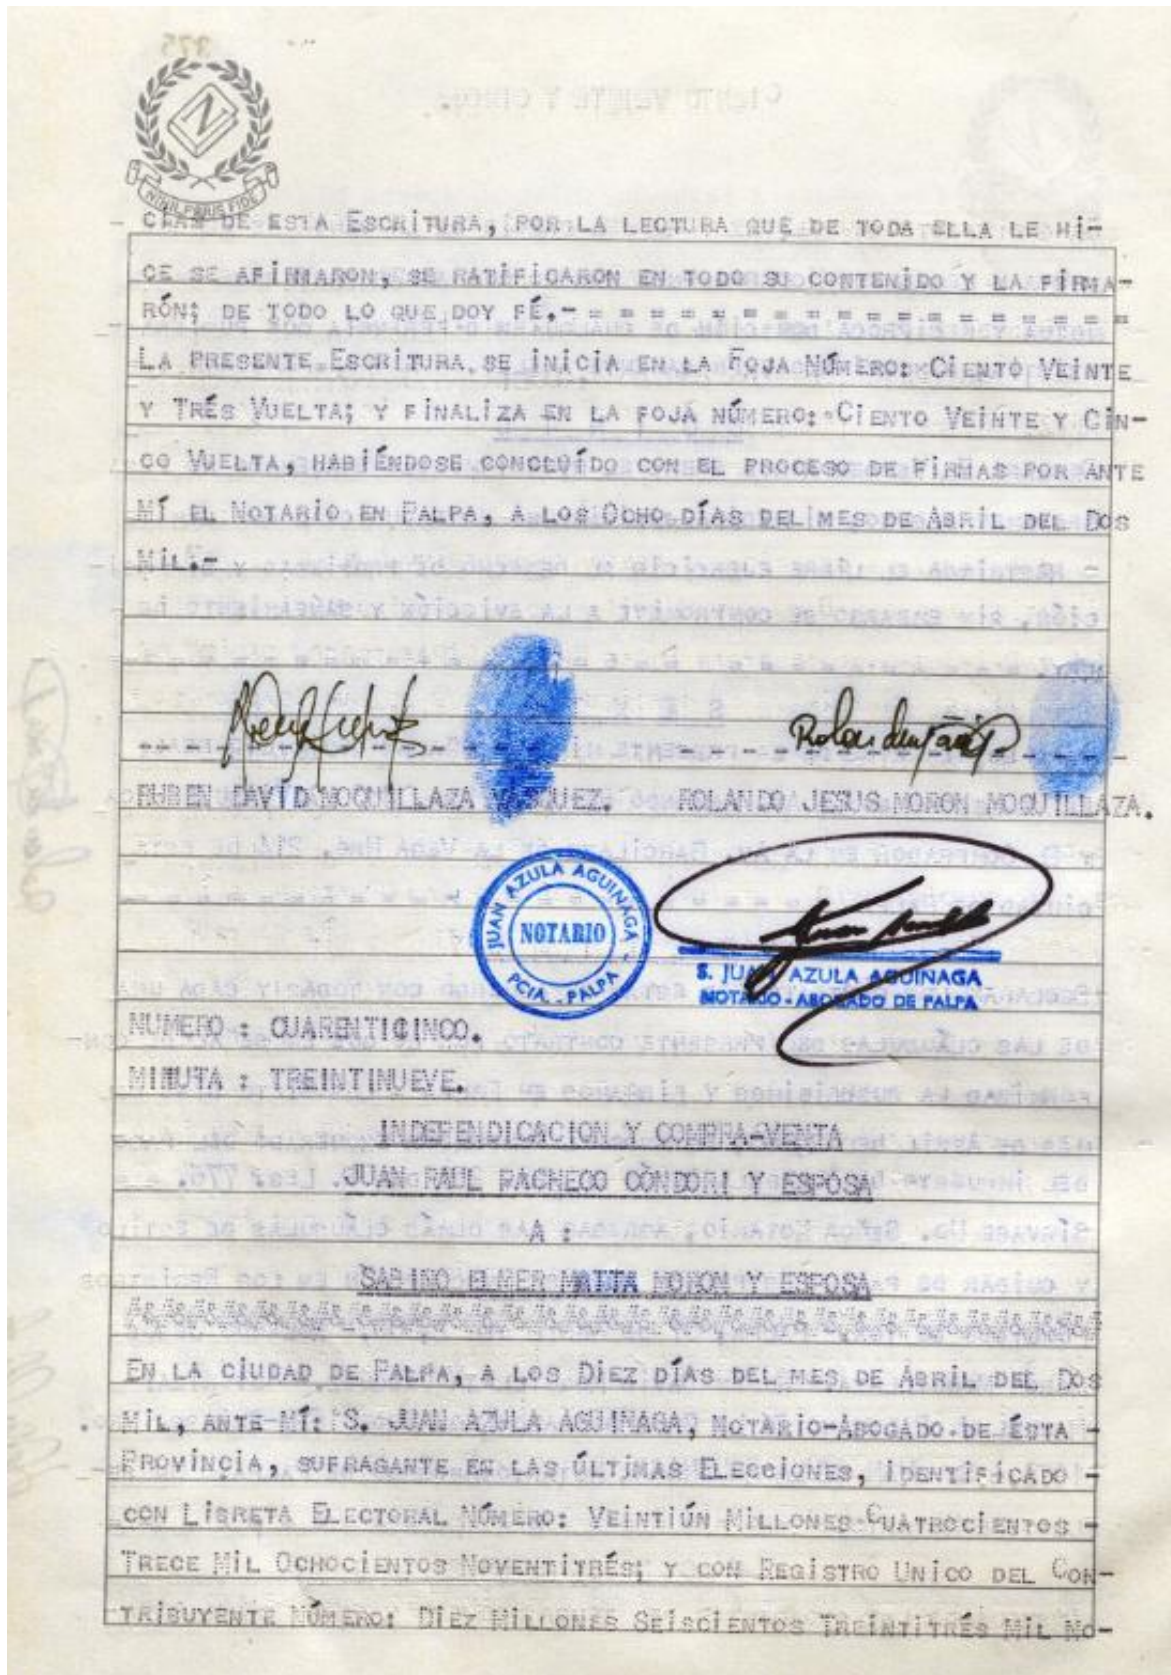 NIHIL PRIUS FIDE
- CIAS DE ESTA ESCRITURA, POR LA LECTURA QUE DE TODA ELLA LE HI-
CE SE AFIRMARON, SE RATIFICARON EN TODO SU CONTENIDO Y LA FIRMA-
RÓN; DE TODO LO QUE DOY FÉ.- = = = = = = = = = = = = = = = = = =
LA PRESENTE ESCRITURA SE INICIA EN LA FOJA NÚMERO: CIENTO VEINTE
Y TRÉS VUELTA; Y FINALIZA EN LA FOJA NÚMERO: CIENTO VEINTE Y CIN-
CO VUELTA, HABIÉNDOSE CONCLUÍDO CON EL PROCESO DE FIRMAS POR ANTE
MÍ EL NOTARIO EN PALPA, A LOS OCHO DÍAS DEL MES DE ABRIL DEL DOS
MIL.-
RUBEN DAVID MOQUILLAZA VASQUEZ. ROLANDO JESUS MORON MOQUILLAZA.
JUAN AZULA AGUINAGA
NOTARIO
PCIA. PALPA
S. JUAN AZULA AGUINAGA
NOTARIO - ABOGADO DE PALPA
NUMERO : CUARENTICINCO.
MINUTA : TREINTINUEVE.
INDEPENDICACION Y COMPRA-VENTA
JUAN RAUL PACHECO CÓNDORI Y ESPOSA
A :
SABINO ELMER MATTA MORON Y ESPOSA
EN LA CIUDAD DE PALPA, A LOS DIEZ DÍAS DEL MES DE ABRIL DEL DOS
MIL, ANTE MÍ: S. JUAN AZULA AGUINAGA, NOTARIO-ABOGADO DE ÉSTA -
PROVINCIA, SUFRAGANTE EN LAS ÚLTIMAS ELECCIONES, IDENTIFICADO -
CON LIBRETA ELECTORAL NÚMERO: VEINTIÚN MILLONES CUATROCIENTOS -
TRECE MIL OCHOCIENTOS NOVENTITRÉS; Y CON REGISTRO UNICO DEL CON-
TRIBUYENTE NÚMERO: DIEZ MILLONES SEISCIENTOS TREINTITRÉS MIL NO-